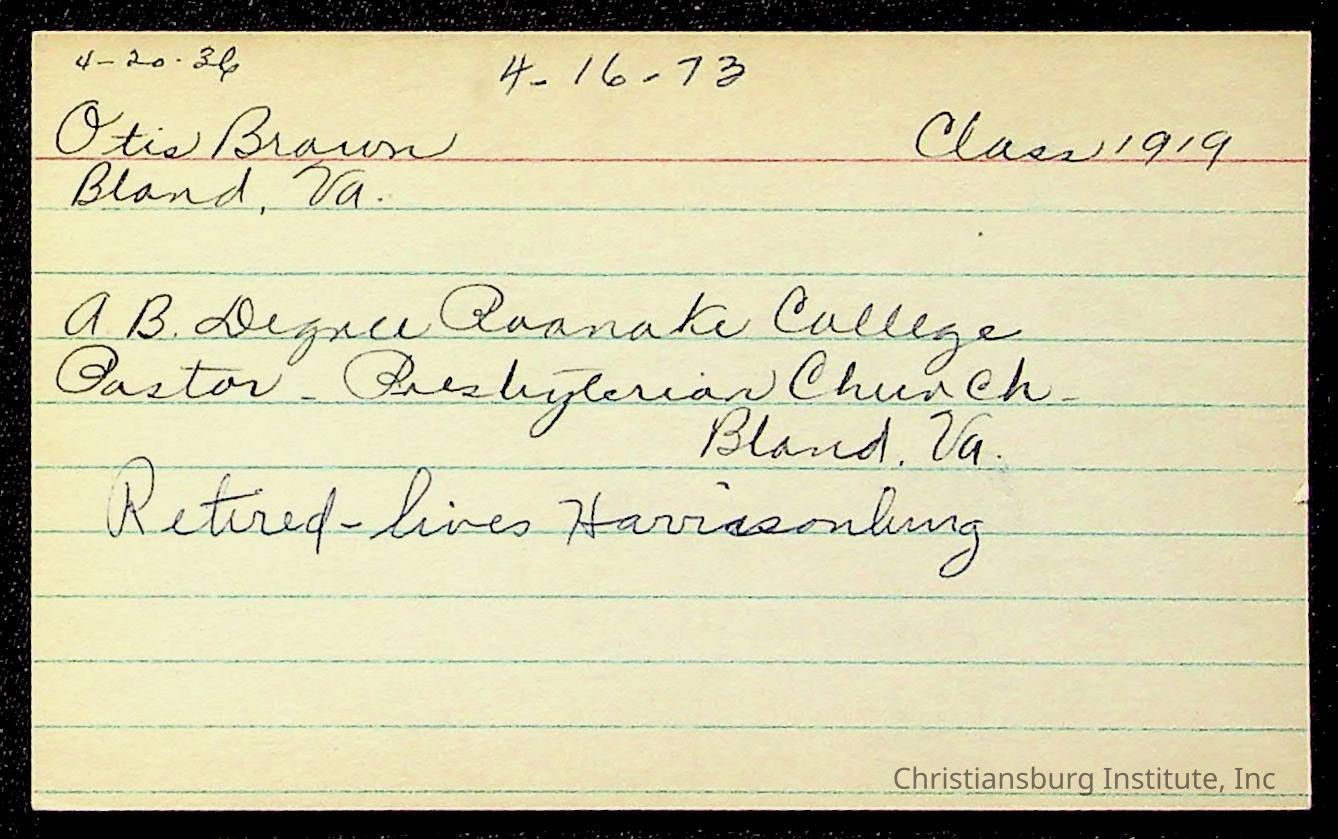 4-20-36 4-16-73
Otis Brown Class 1919
Bland, Va.
A B. Degree Roanoke College
Pastor - Presbyterian Church -
Bland, Va.
Retired - lives Harrissonburg
Christiansburg Institute, Inc